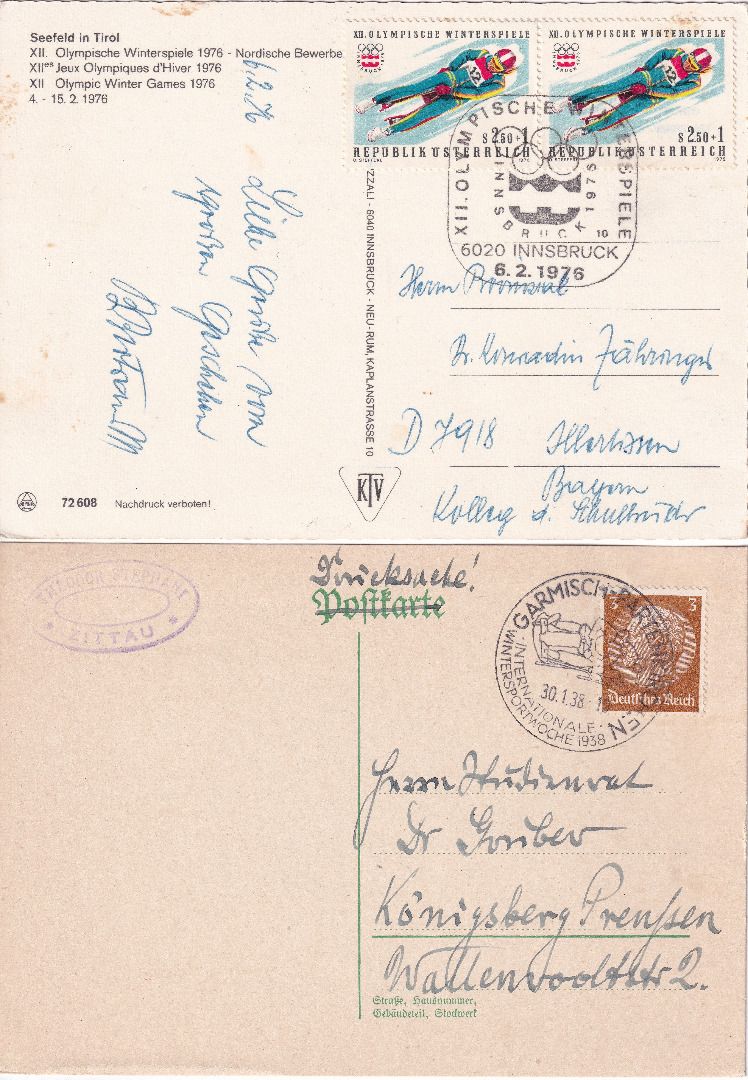 Seefeld in Tirol
XII. Olympische Winterspiele 1976 - Nordische Bewerbe
XIIes Jeux Olympiques d'Hiver 1976
XII Olympic Winter Games 1976
4. - 15. 2. 1976
6.2.76
Liebe Grüße vom
großen Geschehen
XII. OLYMPISCHE WINTERSPIELE
INNSBRUCK
12
S 2.50+1
REPUBLIK ÖSTERREICH
1975
XII. OLYMPISCHE WINTERSPIELE
INNSBRUCK
12
S 2.50+1
REPUBLIK ÖSTERREICH
1975
XII. OLYMPISCHE WINTERSPIELE
INNSBRUCK 1976
10
6020 INNSBRUCK
6.2.1976
ZZALI - 6040 INNSBRUCK - NEU-RUM, KAPLANSTRASSE 10
Herrn
Dr. Konradin Zähringer
D 7918 Illertissen
Bayern
Kolleg d. Schulbrüder
KTV
72 608 Nachdruck verboten!
ZITTAU
Drucksache!
Postkarte
GARMISCH-PARTENKIRCHEN
30.1.38
INTERNATIONALE
WINTERSPORTWOCHE 1938
3 3
Deutsches Reich
Herrn Studienrat
Dr Gruber
Königsberg Preußen
Straße, Hausnummer,
Gebäudeteil, Stockwerk